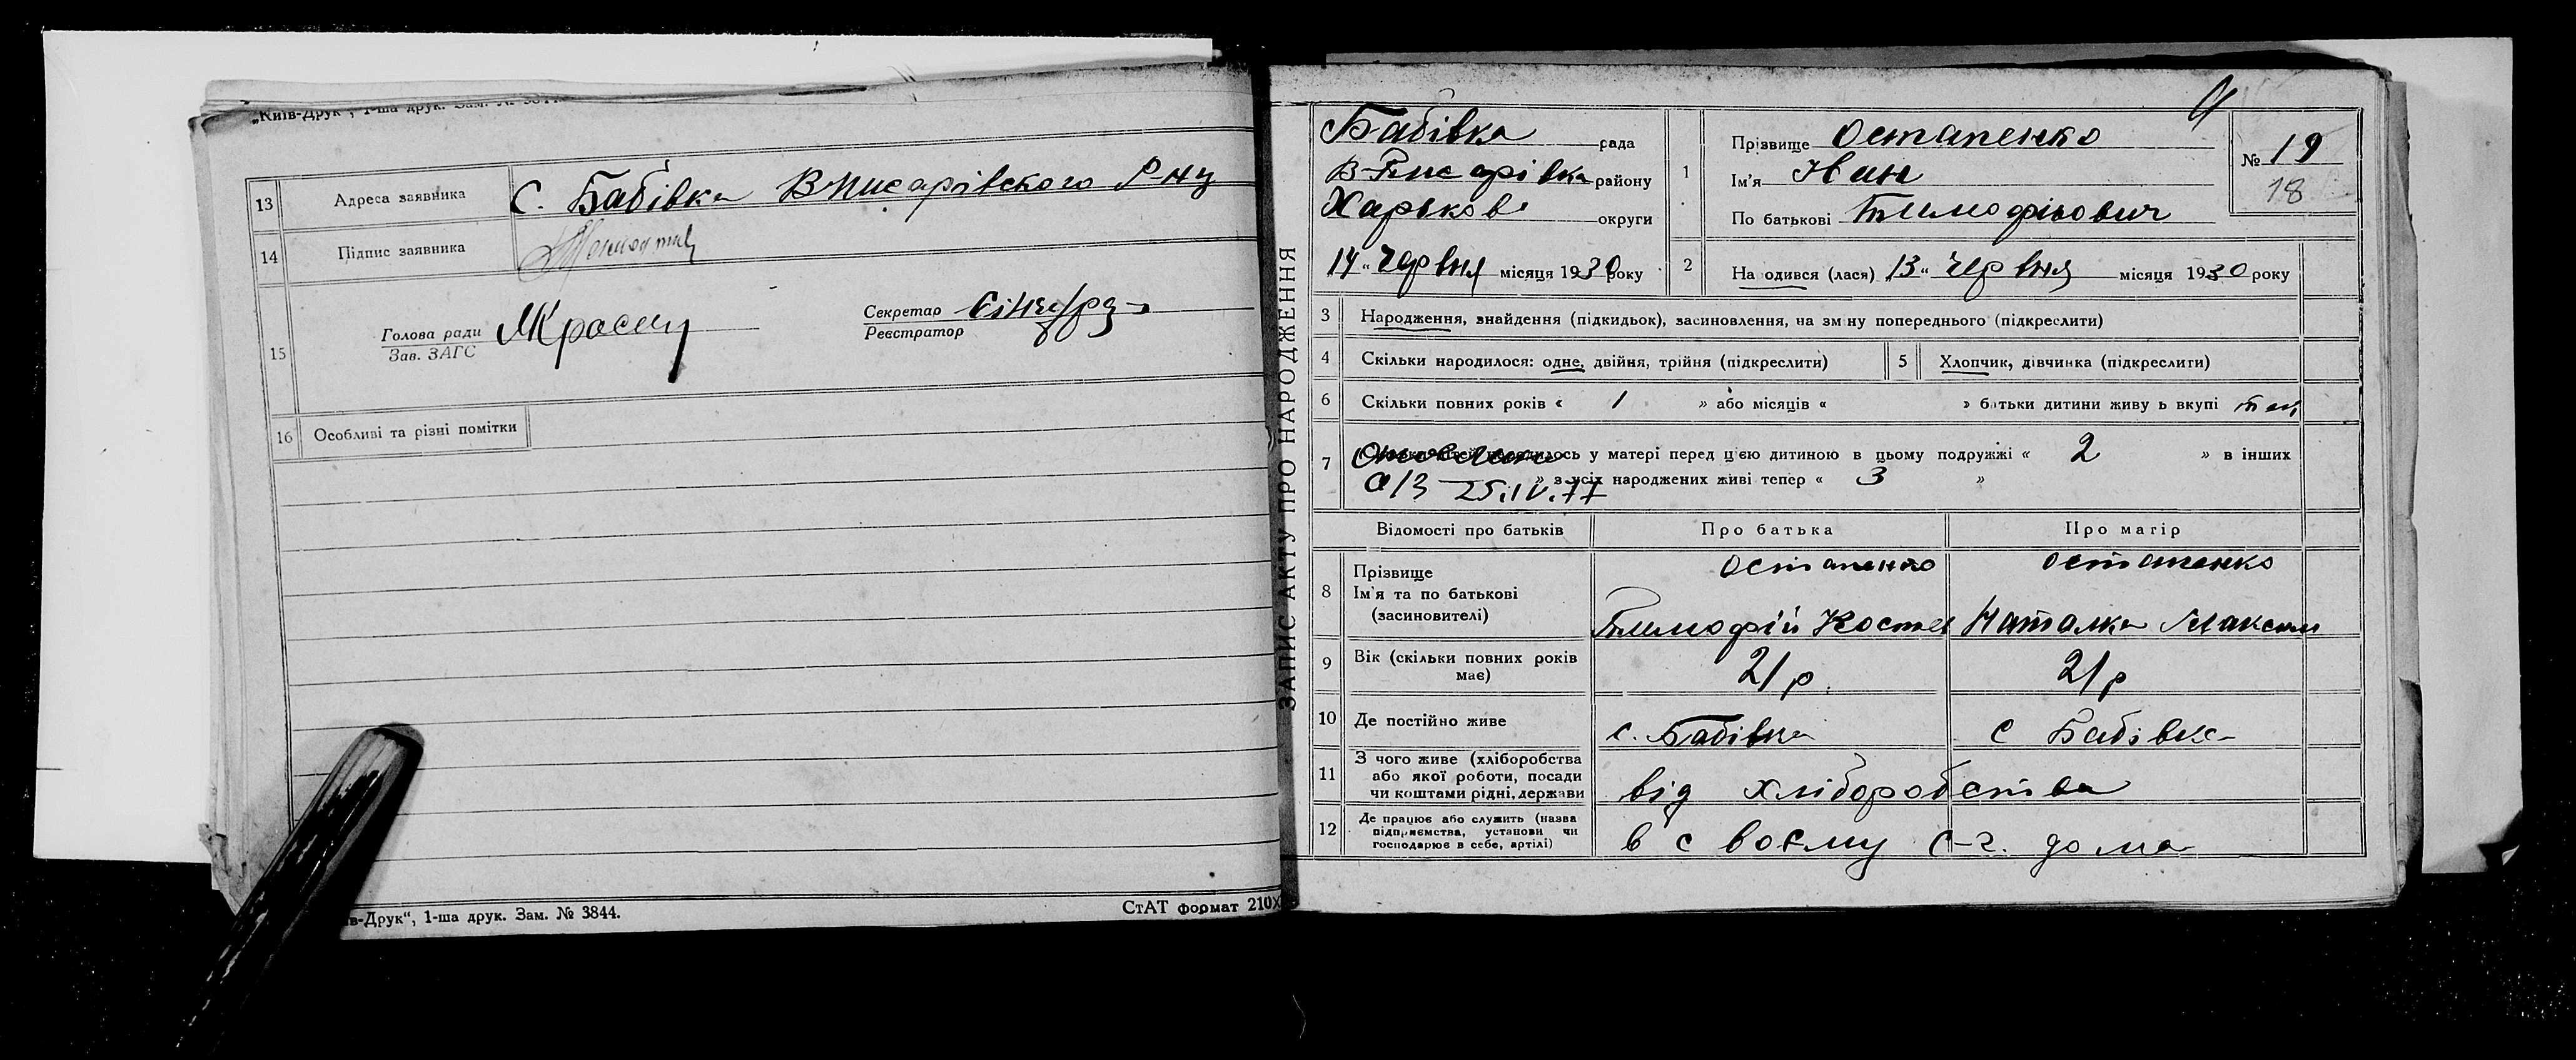 „Київ-Друк", 1-ша друк. Зам. №
13 Адреса заявника с. Бабівка В Писарівского Р-ну
14 Підпис заявника
15 Голова ради
Зав. ЗАГС
Секретар
Реєстратор
16 Особливі та різні помітки
в-Друк", 1-ша друк. Зам. № 3844.
СтАТ формат 210Х
ЗАПИС АКТУ ПРО НАРОДЖЕННЯ
Бабівка рада
В-Писарівка району
Харьков округи
14 „ Червня місяця 1930 року
1 Прізвище Остапенко
Ім'я Иван
По батькові Тимофійович
№ 19
18
2 На одився (лася) „13 „ Червня місяця 1930 року
3 Народження, знайдення (підкидьок), засиновлення, на зм ну попереднього (підкреслити)
4 Скільки народилося: одне, двійня, трійня (підкреслити)
5 Хлопчик, дівчинка (підкреслити)
6 Скільки повних років « 1 » або місяців « » батьки дитини живу ь вкупі так
7 народилось у матері перед цією дитиною в цьому подружжі « 2 » в інших
» з усіх народжених живі тепер « 3 »
25.IV.77
Відомості про батьків Про батька Про матір
8 Прізвище
Ім'я та по батькові
(засиновителі)
Остапенко
Тимофій Костев
Остапенко
Наталка Максим
9 Вік (скільки повних років
має)
21 р. 21 р
10 Де постійно живе с. Бабівка с Бабівка
11 З чого живе (хліборобства
або якої роботи, посади
чи коштами рідні, держави
від хліборобства
12 Де працює або служить (назва
підприємства, установи чи
господарює в себе, артілі)
в своєму с-г. дома